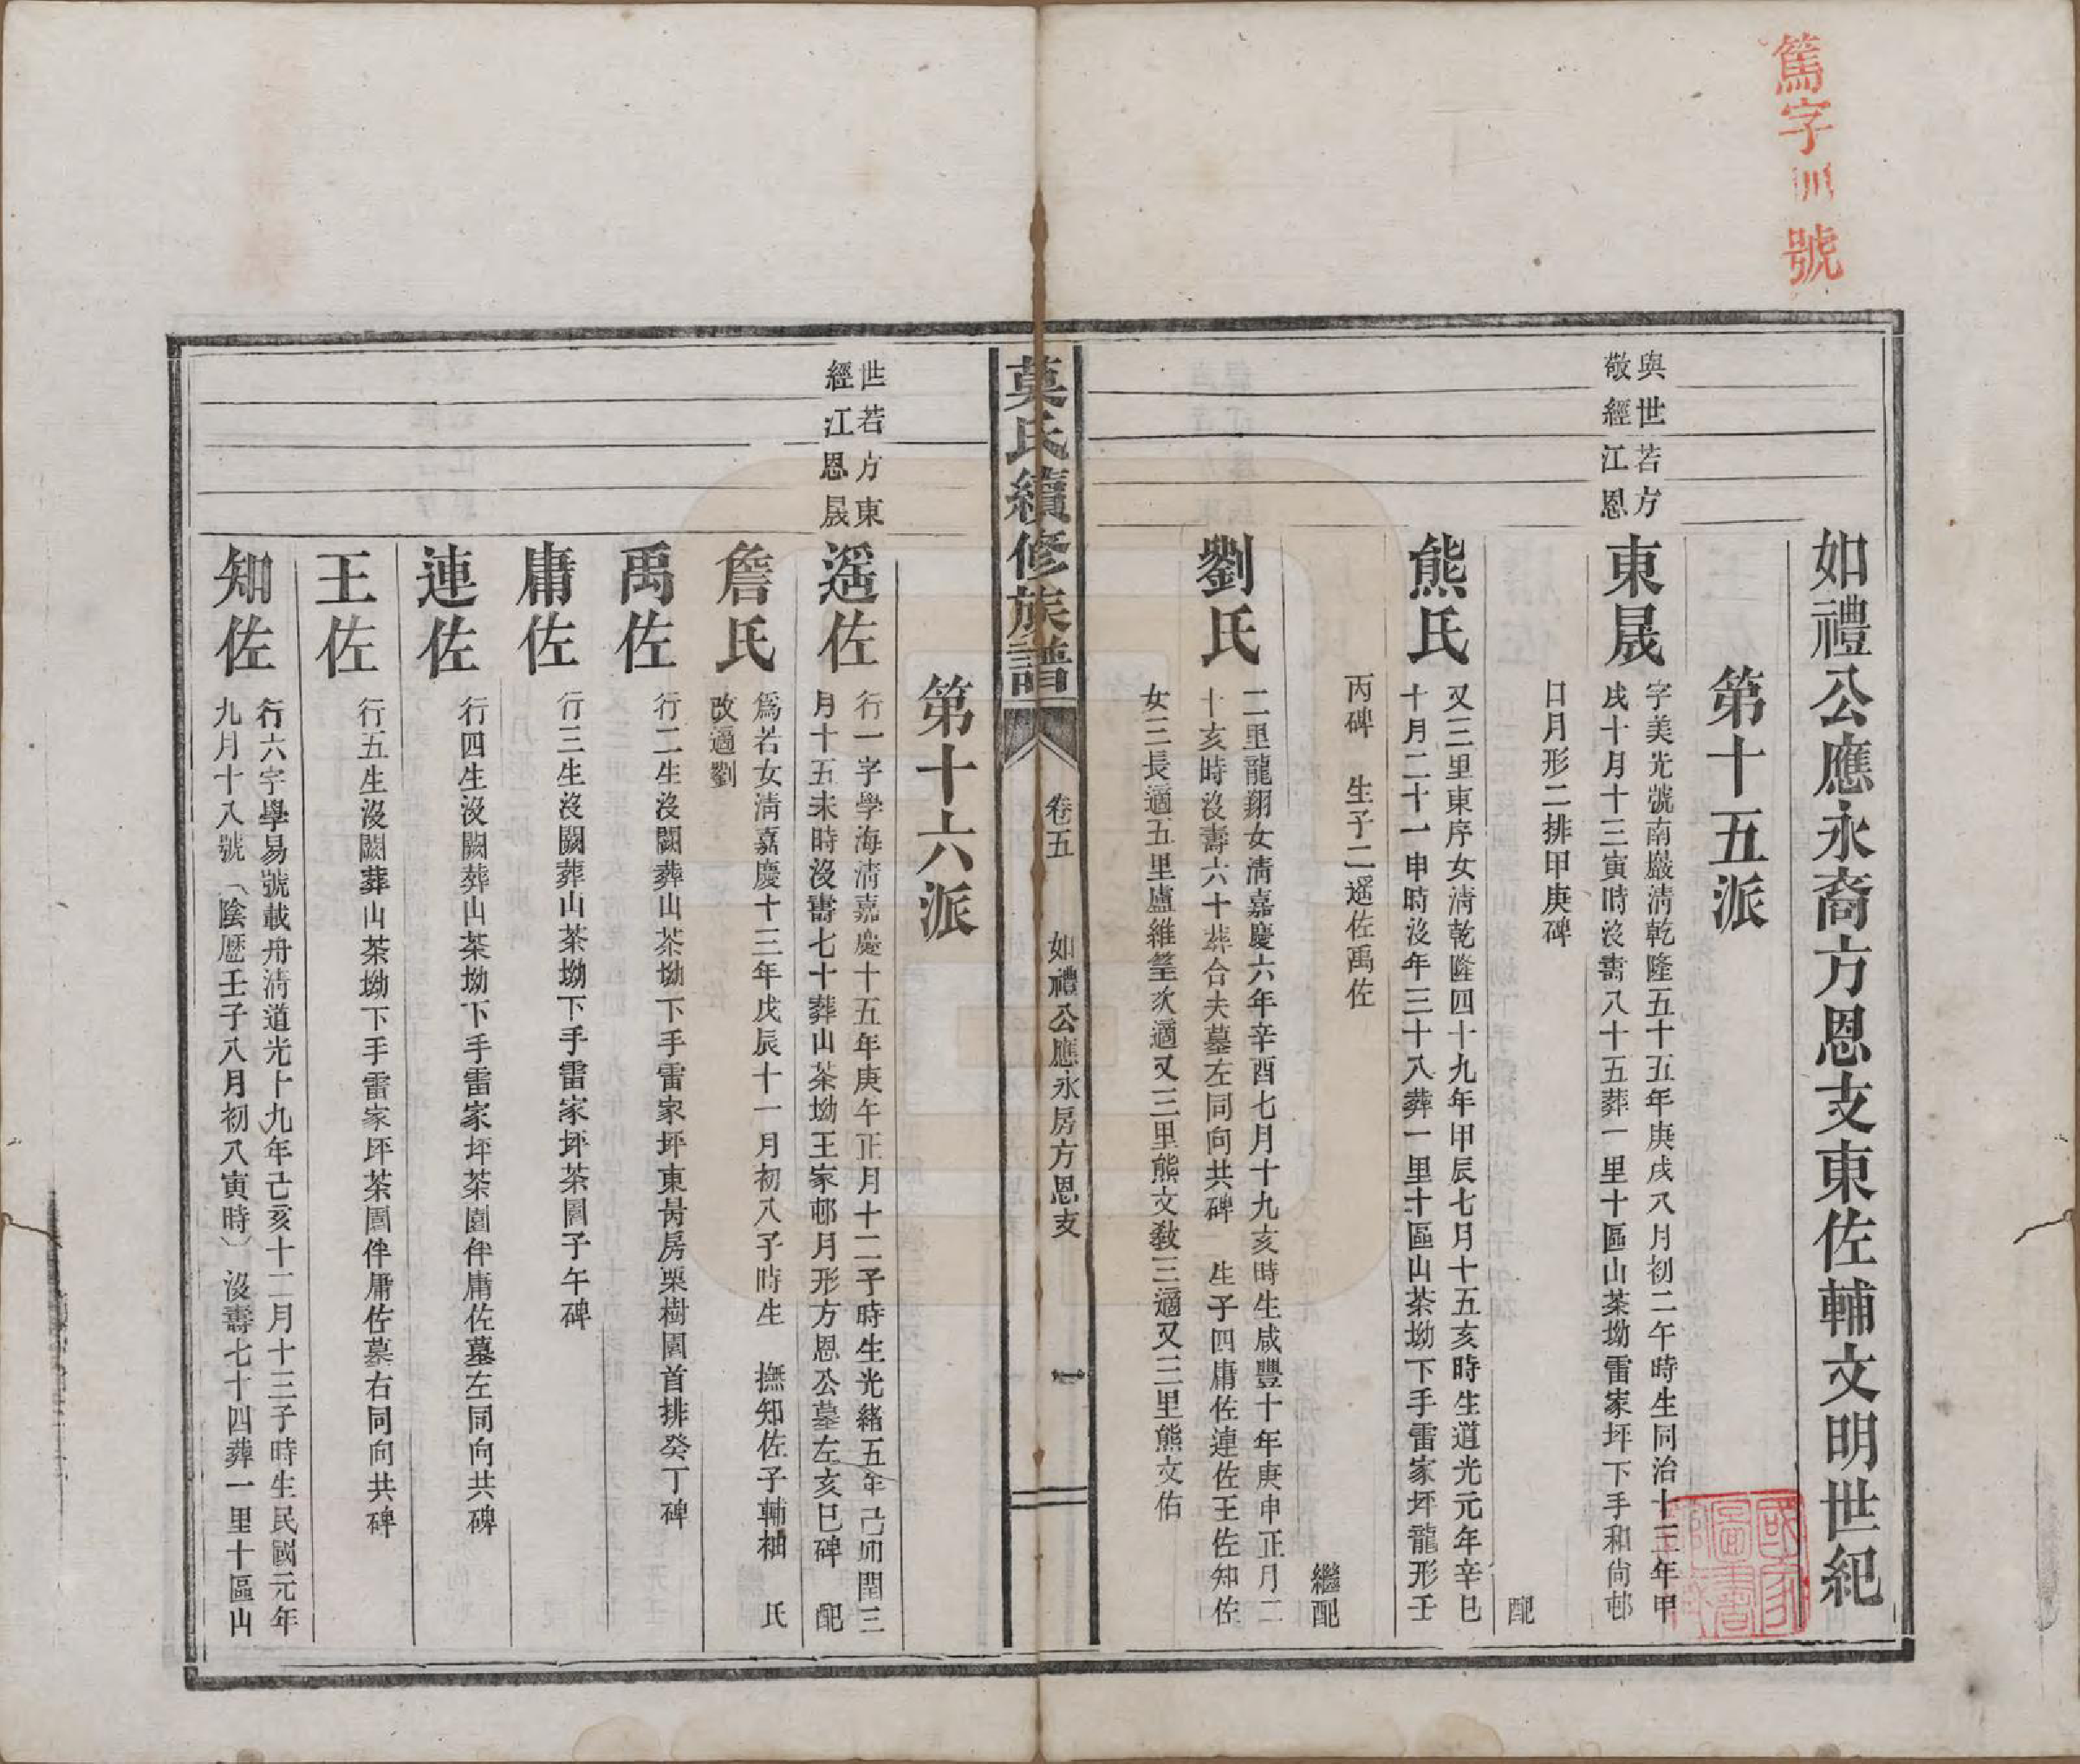 篤字 號
如禮公應永裔方恩支東佐輔文明世紀
第十五派
與世若方
敬經江恩
東晟
字美光號南嚴淸乾隆五十五年庚戌八月初二午時生同治十三年甲
戌十月十三寅時沒壽八十五葬一里十區山茶坳雷家坪下手和尙邨
日月形二排甲庚碑
配
熊氏
又三里東序女淸乾隆四十九年甲辰七月十五亥時生道光元年辛巳
十月二十一申時沒年三十八葬一里十區山茶坳下手雷家坪龍形壬
丙碑 生子二遥佐禹佐
繼配
劉氏
二里龍翔女淸嘉慶六年辛酉七月十九亥時生咸豐十年庚申正月二
十亥時沒壽六十葬合夫墓左同向共碑 生子四庸佐連佐王佐知佐
女三長適五里盧維筌次適又三里熊文敎三適又三里熊文佑
莫氏續修族譜
卷五
如禮公應永房方恩支
一
第十六派
世若方東
經江恩晟
遥佐
行一字學海淸嘉慶十五年庚午正月十二子時生光緒五年己卯閏三
月十五未時沒壽七十葬山茶坳王家邨月形方恩公墓左亥巳碑 配
詹氏
爲若女淸嘉慶十三年戊辰十一月初八子時生 撫知佐子輔䄂 氏
改適劉
禹佐
行二生沒闕葬山茶坳下手雷家坪東昺房栗樹園首排癸丁碑
庸佐
行三生沒闕葬山茶坳下手雷家坪茶園子午碑
連佐
行四生沒闕葬山茶坳下手雷家坪茶園伴庸佐墓左同向共碑
王佐
行五生沒闕葬山茶坳下手雷家坪茶園伴庸佐墓右同向共碑
知佐
行六字學易號載舟淸道光十九年己亥十二月十三子時生民國元年
九月十八號（陰歷壬子八月初八寅時）沒壽七十四葬一里十區山